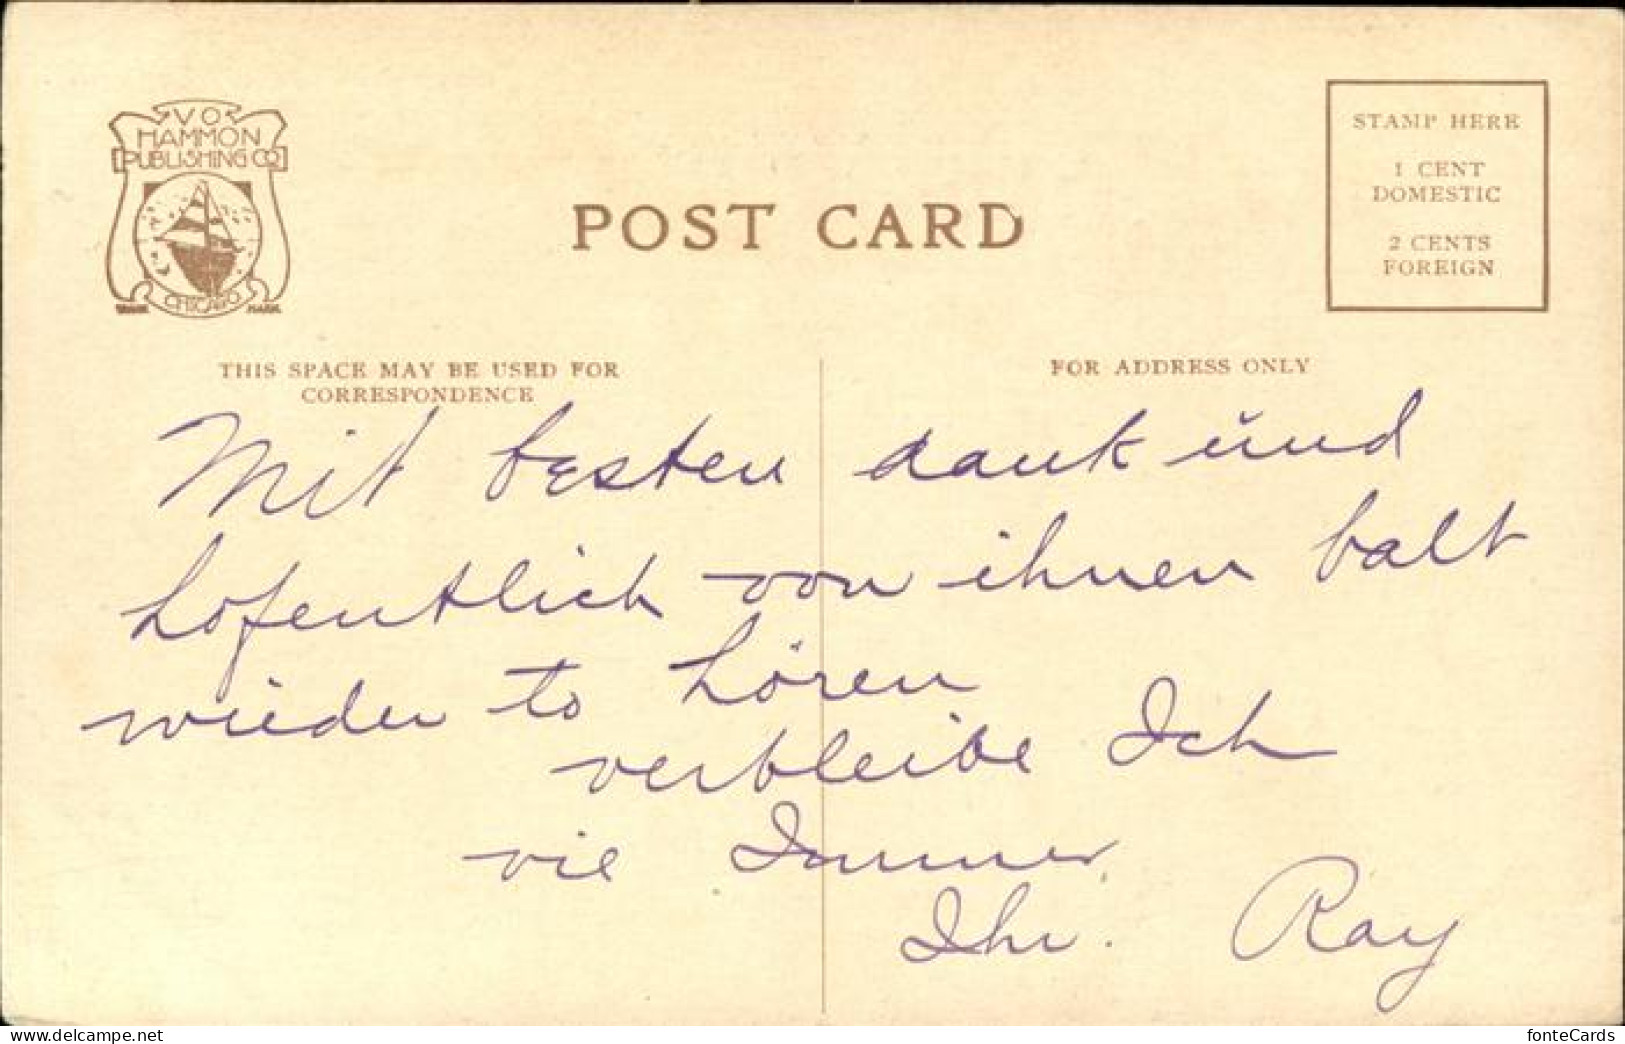 VO
HAMMON
PUBLISHING CO
CHICAGO
TRADE MARK
POST CARD
STAMP HERE
1 CENT
DOMESTIC
2 CENTS
FOREIGN
THIS SPACE MAY BE USED FOR
CORRESPONDENCE
FOR ADDRESS ONLY
Mit besten dank und
hofentlich von ihnen balt
wieder to hören
verbleibe Ich
vie Immer
Ihr. Ray
www.delcampe.net
fonteCards